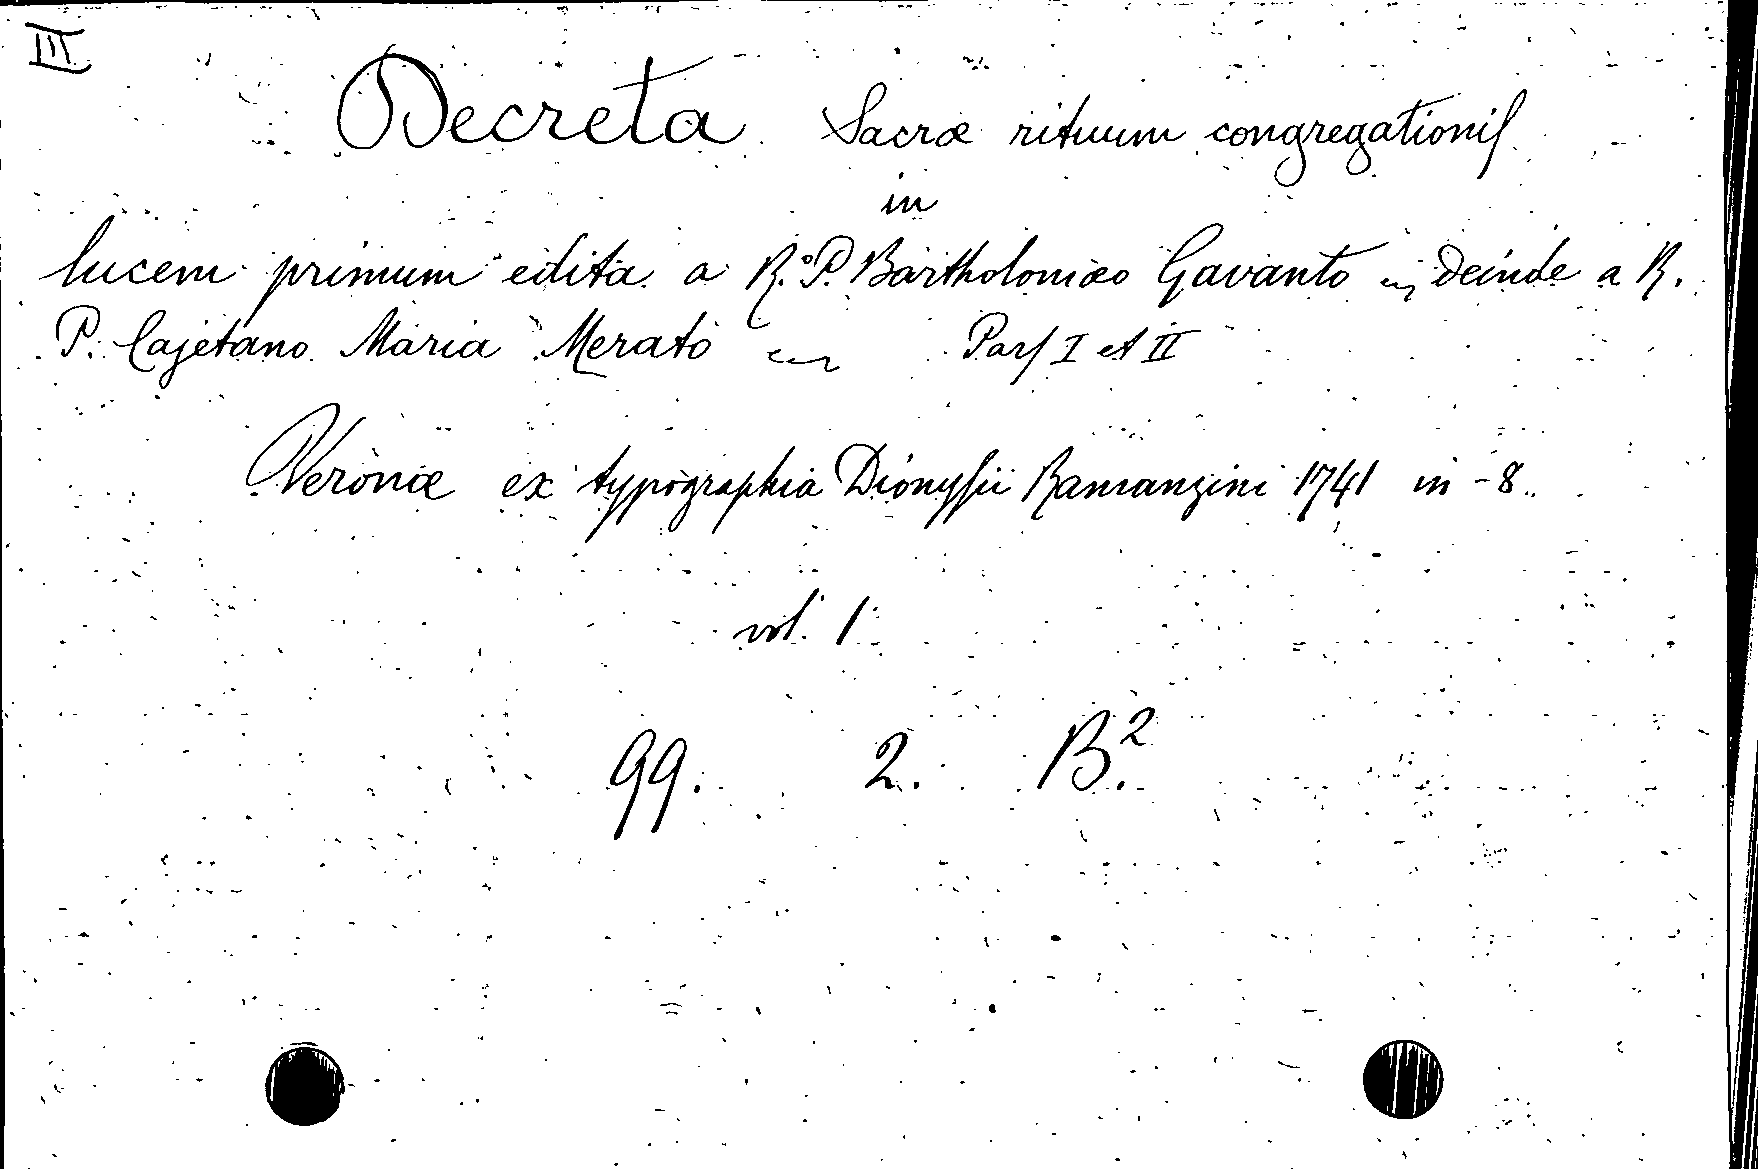 III
Decreta Sacræ rituum congregationis
in
lucem primum edita a R. P. Bartholomæo Gavanto deinde a R.
P. Cajetano Maria Merato Pars I et II
Veronæ ex typographia Dionysii Ramanzini 1741 in-8.
vol. 1
99. 2. B.²